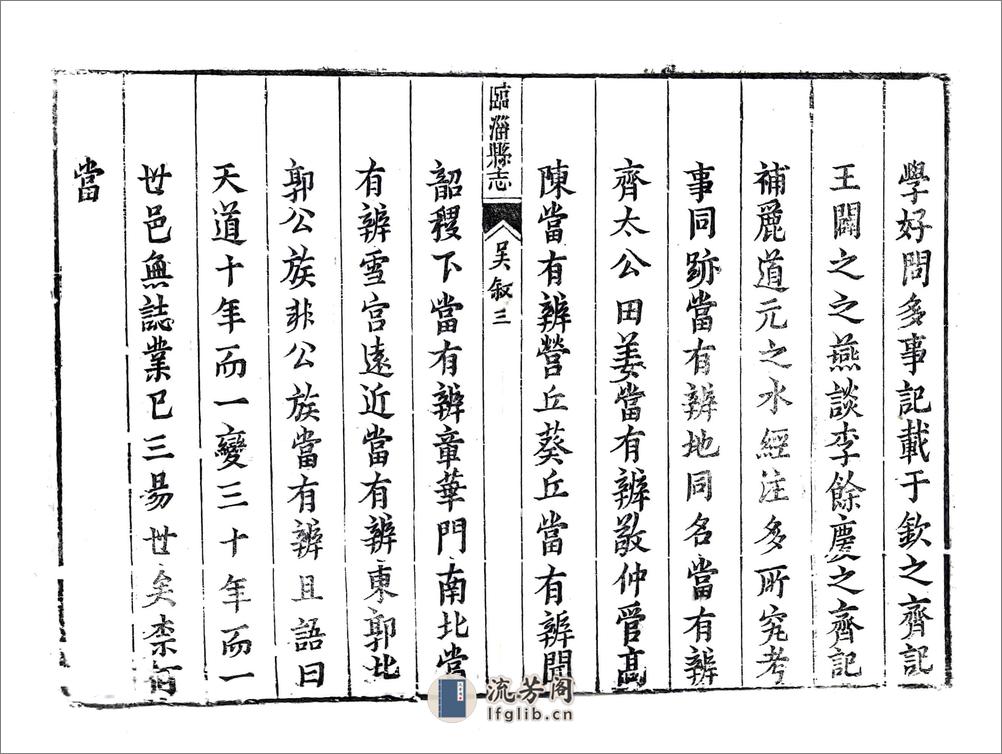 學好問多事記載于欽之齊記
王闢之之燕談李餘慶之齊記
補麗道元之水經注多所究考
事同跡當有辨地同名當有辨
齊太公田姜當有辨敬仲管高
陳當有辨營丘葵丘當有辨聞
臨淄縣志
吴叙 三
韶稷下當有辨章華門南北當
有辨雪宮遠近當有辨東郭北
郭公族非公族當有辨且語曰
天道十年而一變三十年而一
世邑無誌業已三易世矣柰何
當
流芳阁
lfglib.cn